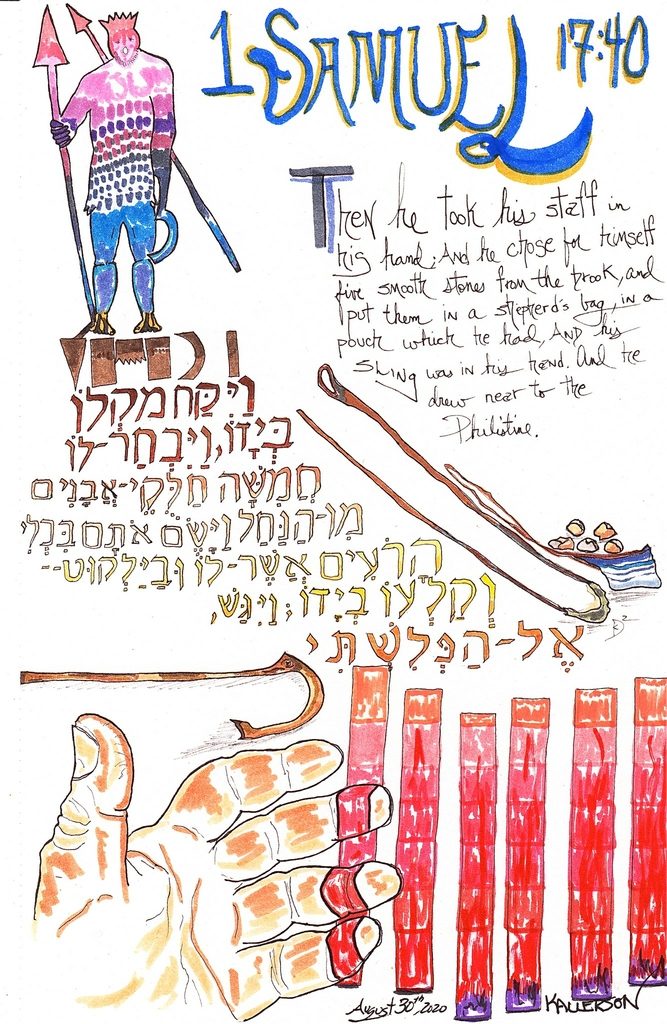 1 SAMUEL 17:40
Then he took his staff in
his hand; And he chose for himself
five smooth stones from the brook, and
put them in a shepherd's bag, in a
pouch which he had, And his
sling was in his hand. And he
drew near to the
Philistine.
וַיִּקַּח מַקְלוֹ
בְּיָדוֹ, וַיִּבְחַר-לוֹ
חֲמִשָּׁה חַלֻּקֵי-אֲבָנִים
מִן-הַנַּחַל וַיָּשֶׂם אֹתָם בִּכְלִי
הָרֹעִים אֲשֶׁר-לוֹ וּבַיַּלְקוּט--
וְקַלְעוֹ בְיָדוֹ; וַיִּגַּשׁ,
אֶל-הַפְּלִשְׁתִּי
August 30th, 2020 KALLERSON